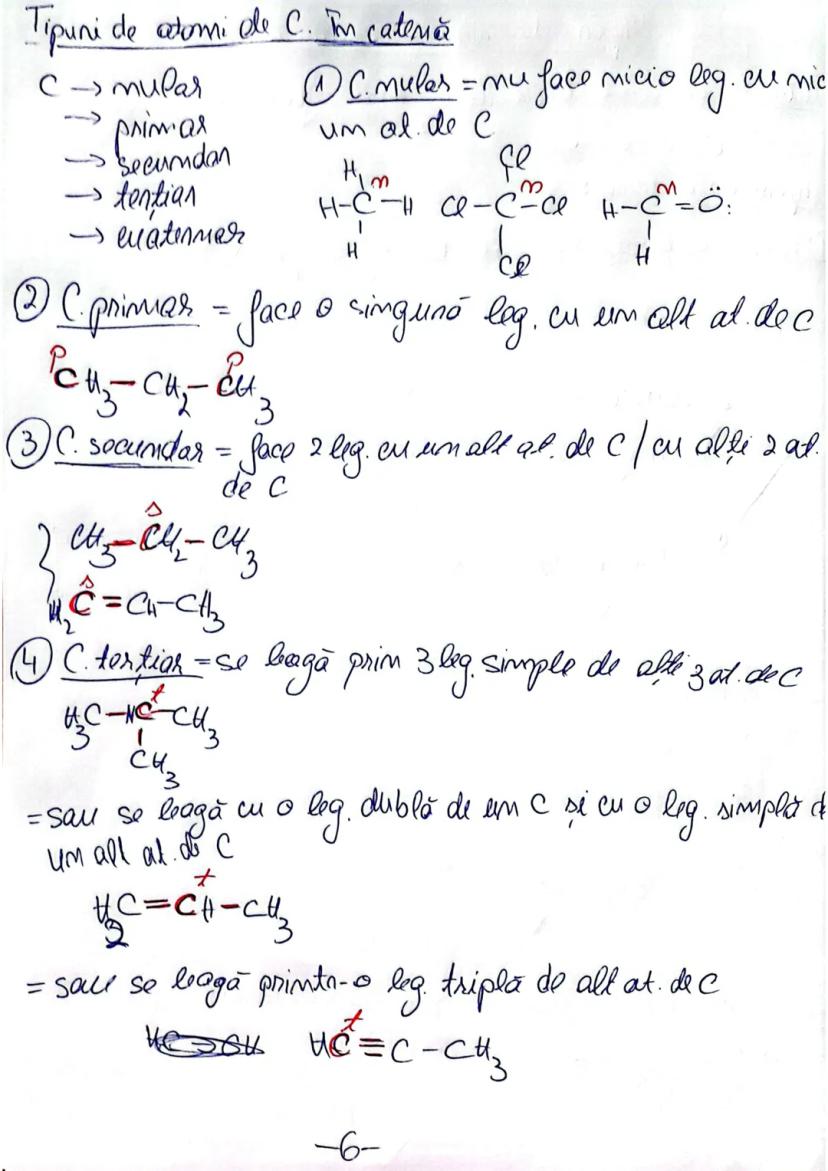 Tipuri de atomi de C. în catenă
C → nular
→ primar
→ secundar
→ terțiar
→ cuaternar
① C. nular = nu face nicio leg. cu nic
un al. de C
H Cl
H-C-H Cl-C-Cl H-C=Ö:
n n n
H Cl H
② C. primar = face o singură leg. cu un alt at. de C
p p
CH3-CH2-CH3
③ C. secundar = face 2 leg. cu un alt at. de C / cu alți 2 at.
de C
s
CH3-CH2-CH3
s
H2C=CH-CH3
④ C. terțiar = se leagă prin 3 leg. simple de alți 3 at. de C
t
H3C-HC-CH3
CH3
= sau se leagă cu o leg. dublă de un C și cu o leg. simplă d
un alt at. de C
t
H2C=CH-CH3
= sau se leagă printr-o leg. triplă de alt at. de C
t
HC≡C-CH3
-6-